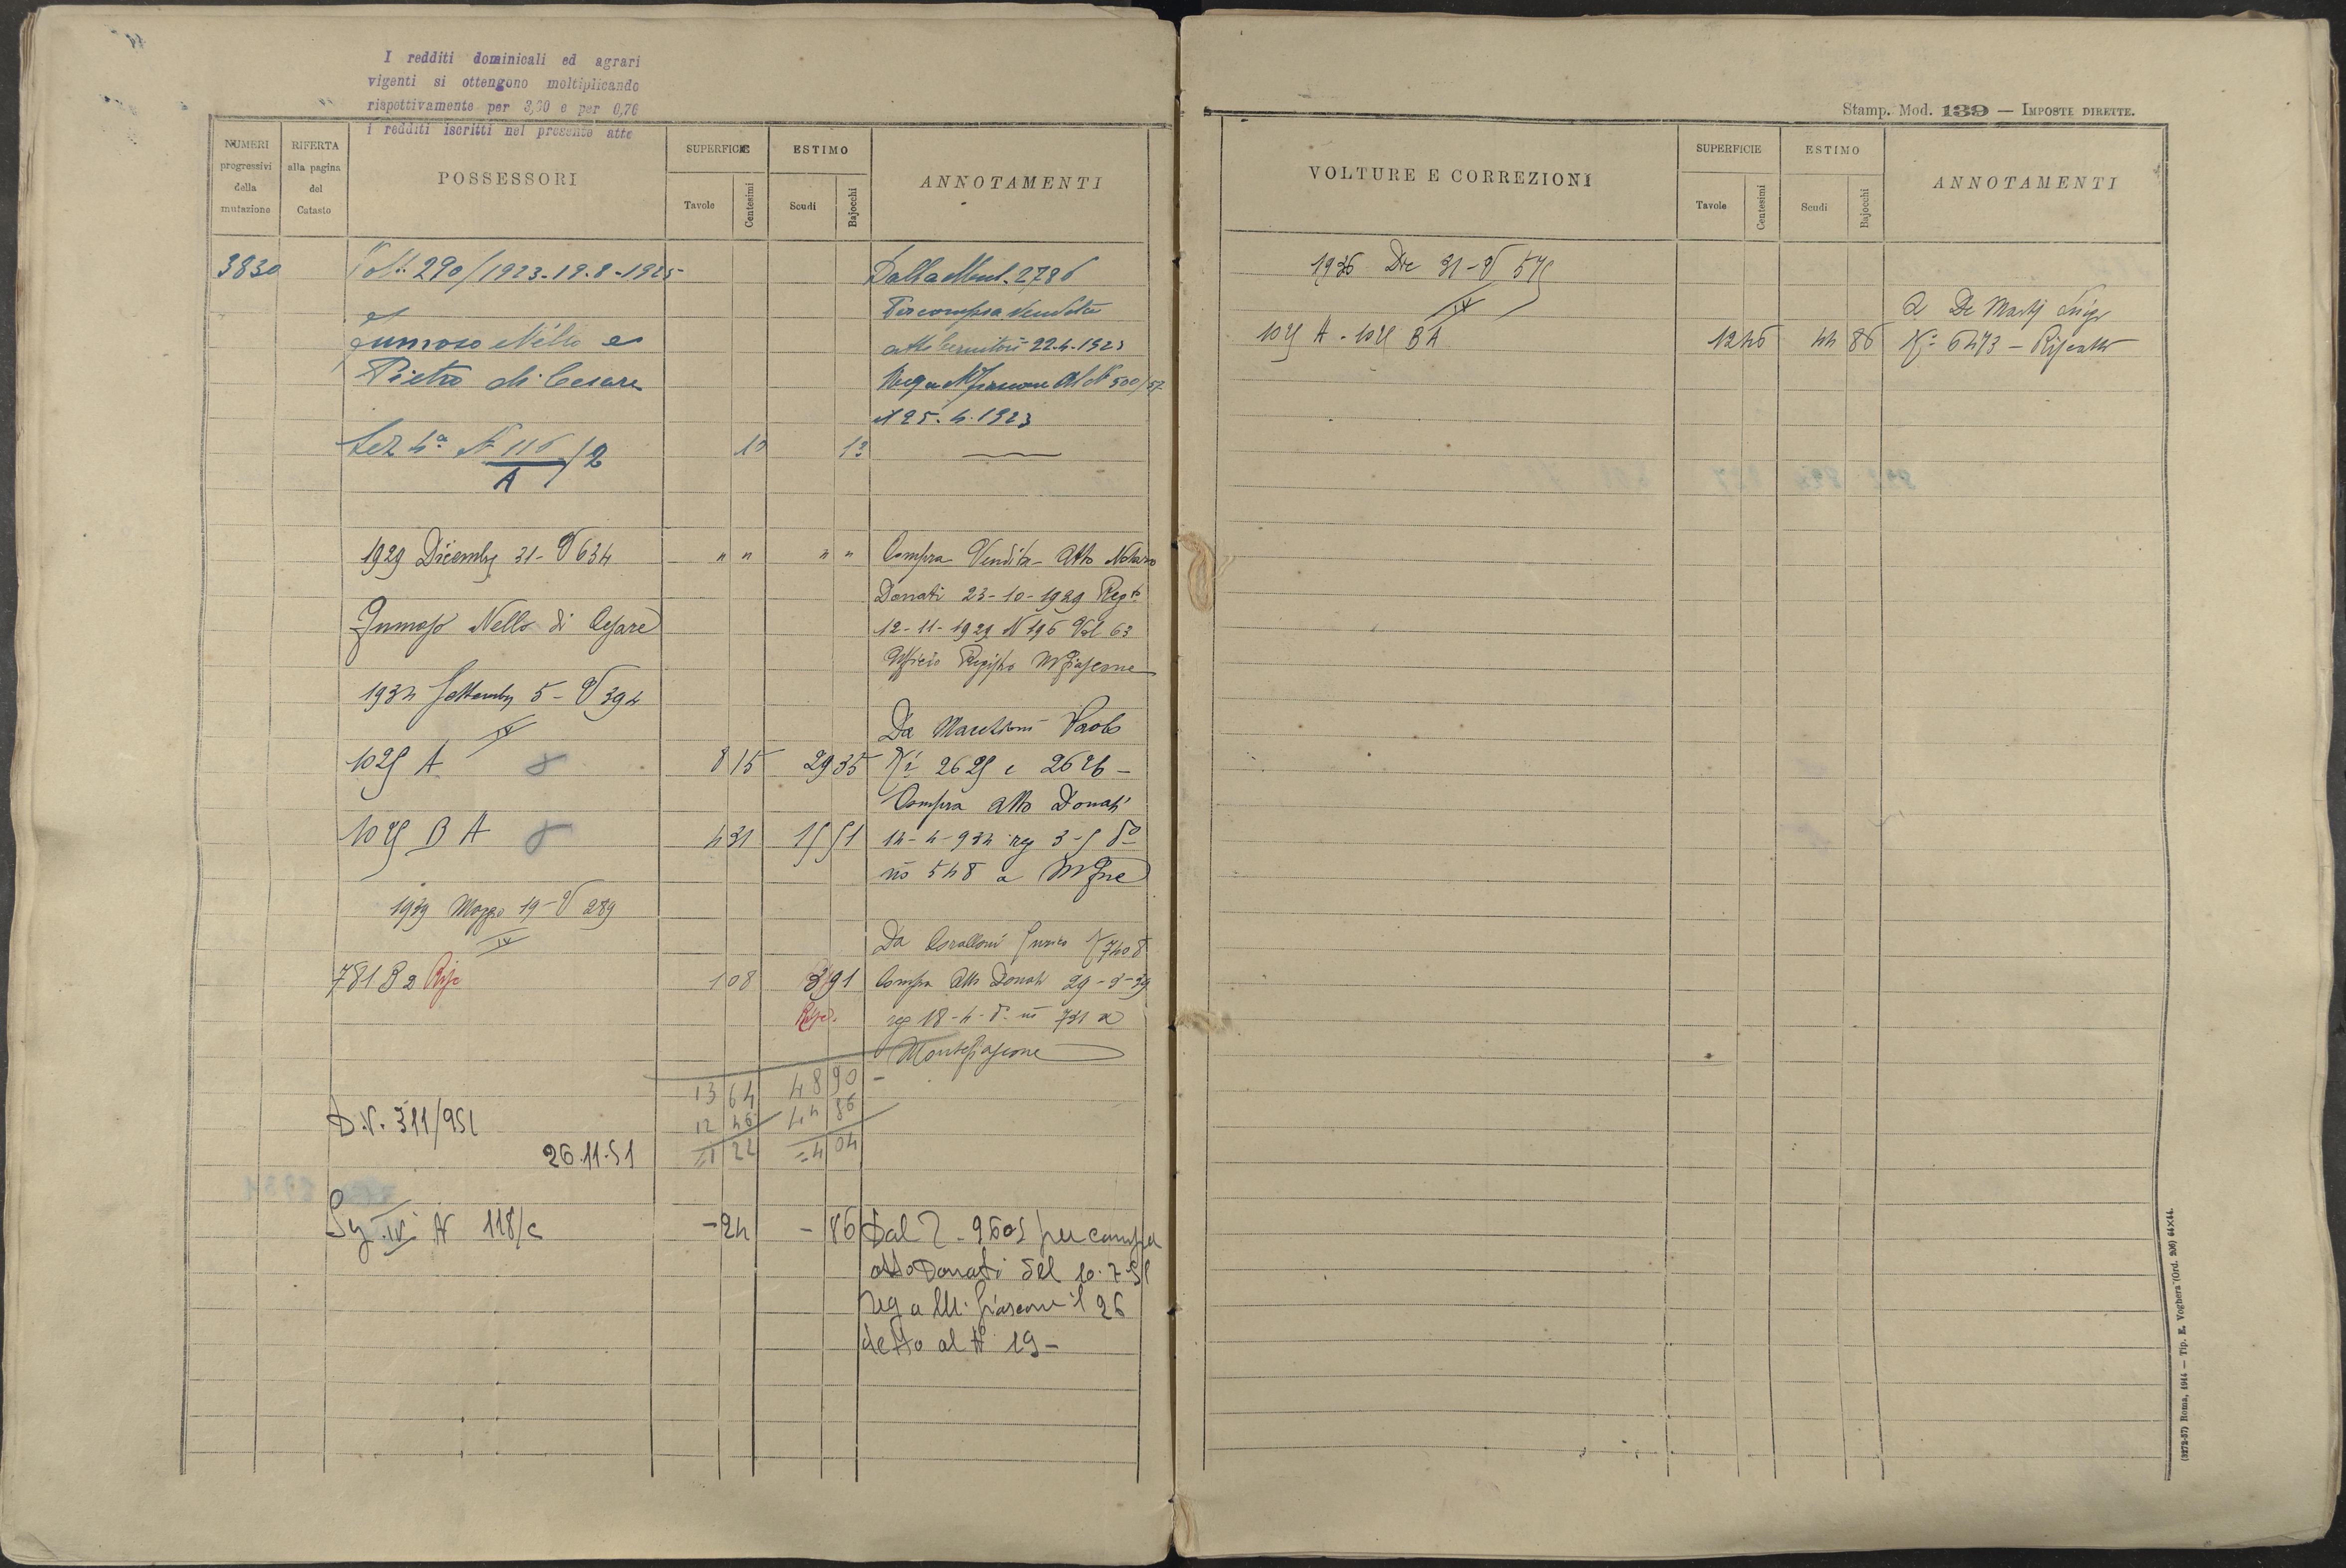 I redditi dominicali ed agrari
vigenti si ottengono moltiplicando
rispettivamente per 3,20 e per 0,76
i redditi iscritti nel presente atto
NUMERI progressivi della mutazione
RIFERTA alla pagina del Catasto
POSSESSORI
SUPERFICIE
Tavole
Centesimi
ESTIMO
Scudi
Bajocchi
ANNOTAMENTI
3830 Volt. 290/1923-19.8-1925- Dalla Mut. 2786
Per compra vendita
Fumoso Nello e atto 22.4.1923
Pietro di Cesare
il 25.4.1923
Sez 4ª N 116/2 13
A
1929 Dicembre 31 - V 634 " " " " Compra Vendita - Atto Notaro
Donati 23-10-1929 Regto
Fumoso Nello di Cesare 12-11-1929 N 196 Vol 63
Ufficio Registro Mfiascone
1934 Settembre 5 - V 394
IV Da Paolo
1025 A 8 15 29 35 Ni 2625 e 2626 -
Compra atto Donati
B A 4 31 15 51 14-4-934 reg 3-5 do
no 548 a Mfne
1939 Marzo 19 - V 289
IV Da
781 B 2 Rife 1 08 3 91 Compra atto Donati 29-3-39
Rife. reg 18-4-do no 731 a
Montefiascone
13 64 48 90 -
D.V. 311/951 12 46 44 86
26.11.51 =1 22 =4 04
IV N 118/c - 24 - 86 Dal 2 - 9605 per compra
atto Donati del 10.7.51
reg a M. fiascone il 26
detto al N 19 -
Stamp. Mod. 139 — IMPOSTE DIRETTE.
VOLTURE E CORREZIONI
SUPERFICIE
Tavole
Centesimi
ESTIMO
Scudi
Bajocchi
ANNOTAMENTI
1936 Dic 31 - V 575
IV a De
A - B A 12 46 44 86 No 6473 -
(3272-57) Roma, 1914 — Tip. E. Voghera (Ord. 206) 64×44.